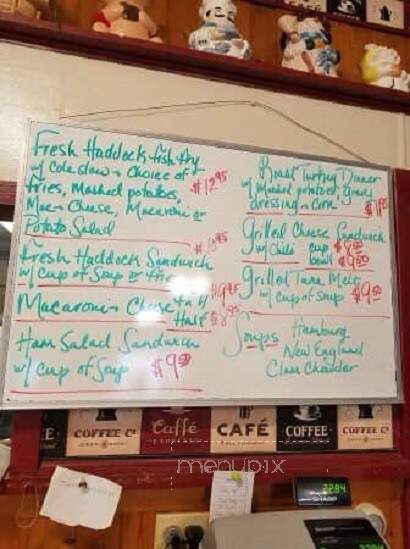 COFFEE
Fresh Haddock Fish Fry
w/ Coleslaw + Choice of
Fries, Mashed potatoes,
Mac + Cheese, Macaroni or
Potato Salad
$12.95
Fresh Haddock Sandwich
w/ Cup of Soup or Fries
Macaroni + Cheese
Half
Ham Salad Sandwich
w/ Cup of Soup $9.50
Roast Turkey Dinner
w/ Mashed potatoes, gravy
dressing + corn
Grilled Cheese Sandwich
w/ Chili cup
bowl
Grilled Tuna Melt
w/ Cup of Soup
Soups Hamburg
New England
Clam Chowder
COFFEE Co
Caffé
CAFÉ
COFFEE
COFFEE Co
menupix